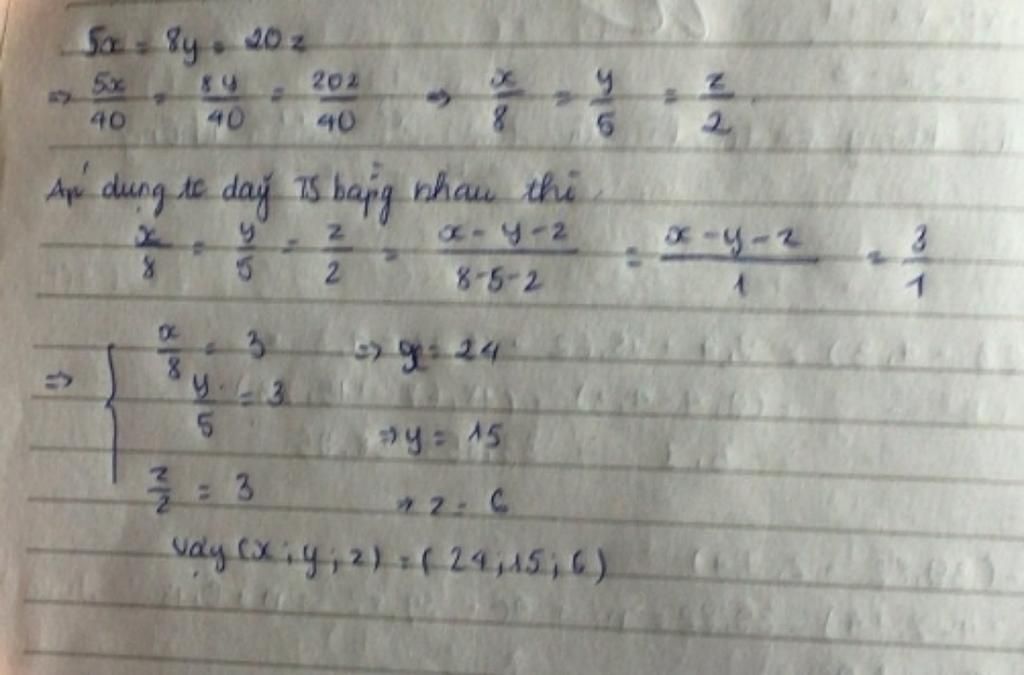 5x = 8y = 20z
⇒ 5x/40 = 8y/40 = 20z/40 ⇒ x/8 = y/5 = z/2
Áp dụng tc dãy TS bằng nhau thì
x/8 = y/5 = z/2 = x-y-z/8-5-2 = x-y-z/1 = 3/1
⇒ { x/8 = 3 ⇒ x = 24
y/5 = 3 ⇒ y = 15
z/2 = 3 ⇒ z = 6
Vậy (x; y; z) = (24; 15; 6)